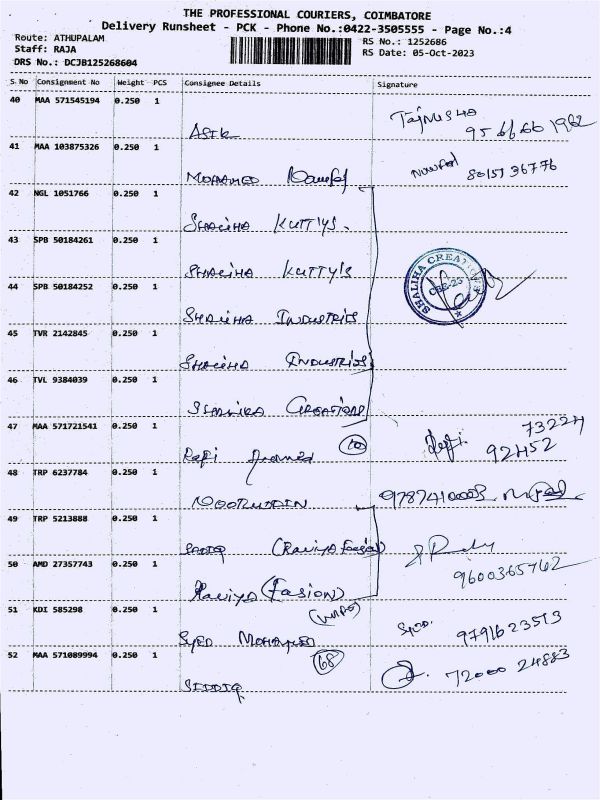 THE PROFESSIONAL COURIERS, COIMBATORE
Delivery Runsheet - PCK - Phone No.:0422-3505555 - Page No.:4
Route: ATHUPALAM
Staff: RAJA
DRS No.: DCJB125268604
RS No.: 1252686
RS Date: 05-Oct-2023
S.No Consignment No Weight PCS Consignee Details Signature
40 MAA 571545194 0.250 1
Asik
95 66 66 1962
41 MAA 103875326 0.250 1
Mohamed
80157 36776
42 NGL 1051766 0.250 1
Shaliha Kutty's.
43 SPB 50184261 0.250 1
Shaliha Kutty's
44 SPB 50184252 0.250 1
Shaliha Industries
SHALIHA CREATIONS
45 TVR 2142845 0.250 1
Shaliha Industries
46 TVL 9384039 0.250 1
Shaliha Creations
47 MAA 571721541 0.250 1
Rafi
Rafi.
73224
92452
48 TRP 6237784 0.250 1
Nooruddin
9787410003
49 TRP 5213888 0.250 1
Sadiq
50 AMD 27357743 0.250 1
Raviya (Fasion)
9600365762
51 KDI 585298 0.250 1
Syed Mohamed
Syed.
9791623513
52 MAA 571089994 0.250 1
68
Siddiq
72000 24883